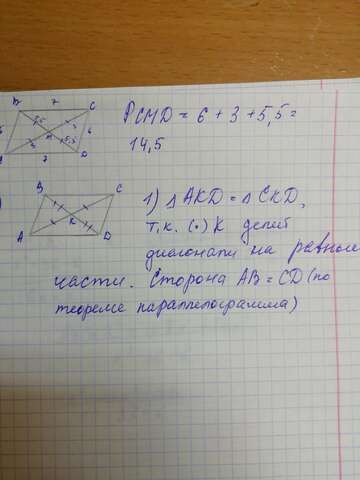 B 7 C
5,5 3
6 M 6
3 5,5
7 D
PCMD = 6 + 3 + 5,5 =
14,5
B C
K
A D
1) △AKD = △CKD,
т.к. (·) K делит
диагонали на равные
части. Сторона AB = CD (по
теореме параллелограмма)